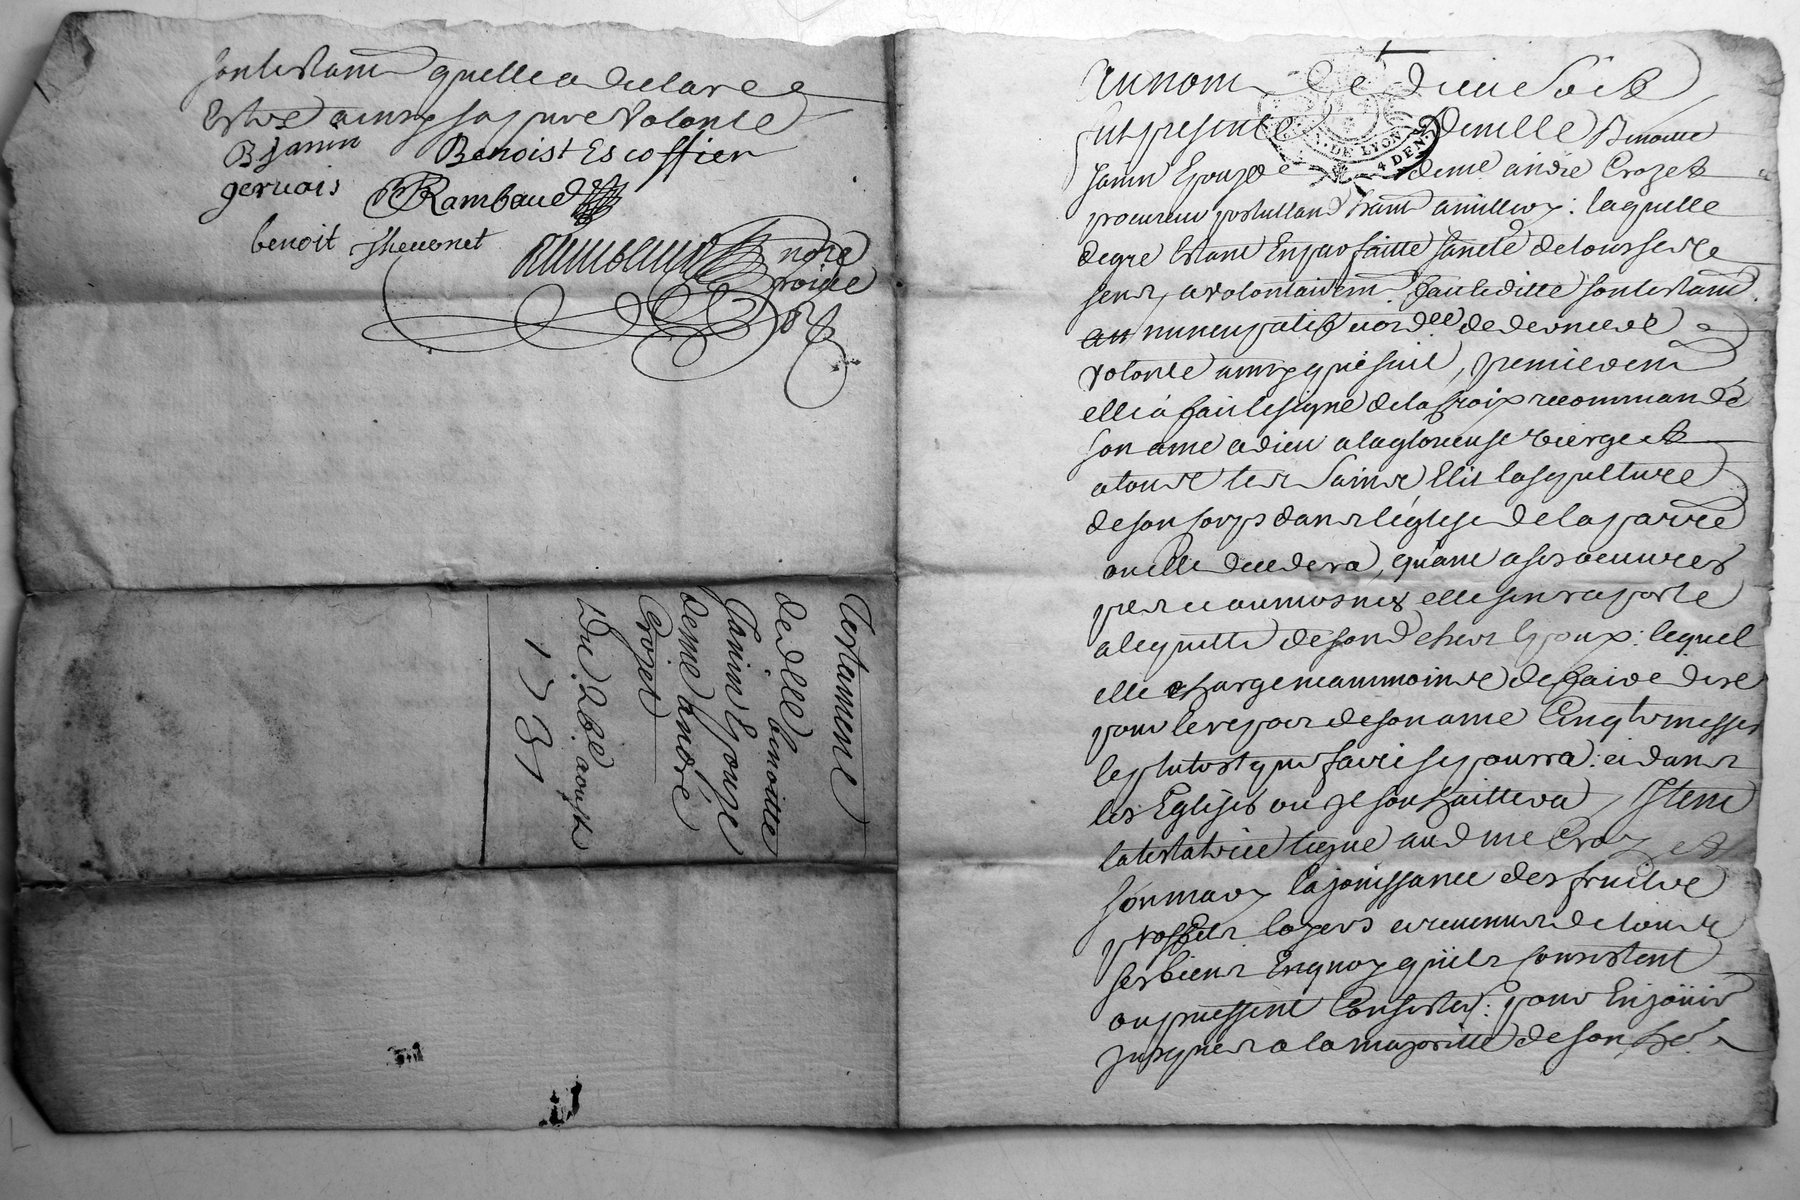 son testam quelle a declaree
Estre ainsy sa pure volonte
B janin Benoist Escoffier
gervais Rambaud
benoit thevenet Rambaud nore
roial
Testament
de dlle benoitte
Janin Epouze
de me André
Crozet
Du 28e aoust
1731
Au nom de dieu soit
fut presente demlle Benoitte
Janin Epouze de me andré Crozet
procureur postullant : laquelle
de gré Estant En parfaitte santé de tous ses
sens, a volontairem fait et ditte son testam
an nuncupatif de derniere
volonte ainsy que suit, premierem
elle a fait le signe de la croix recommandé
son ame a dieu a la glorieuse vierge et
a tous les saints Elit la sepulture
de son corps dans l'église de la parre
ou elle decedera, quant a ses oeuvres
pies et aumosnes elle s'en raporte
a de son cher Epoux : lequel
elle charge neanmoins de faire dire
pour le repos de son ame Cinqte messes
le plutost que faire se pourra : et dans
les Eglises ou il souhaittera, Item
la testatrice legue aud me Crozet
son mary la jouissance des fruits
proffits loyers et revenus de tous
ses biens En quoy qu'ils consistent
ou puissent Consister : pour En joüir
jusques a la majoritté de son he
DE LYON
4 DEN